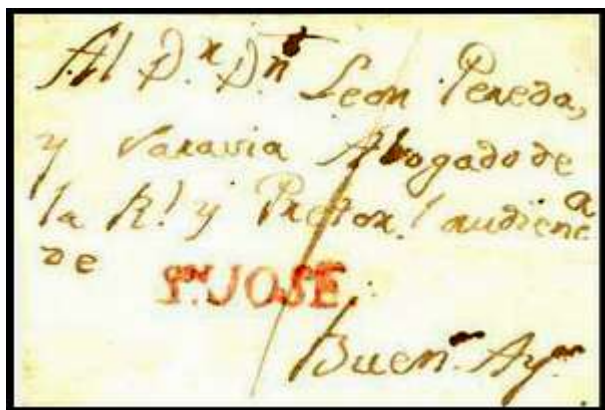 Al D.n D.n Leon Pereda,
y Saravia Abogado de
la R.l y Pretor.l audienc.a
de
S.N JOSE
Buen.s Ay.s